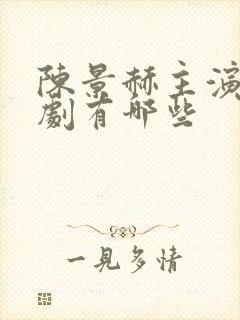 陳景赫主演
劇有哪些
一見多情